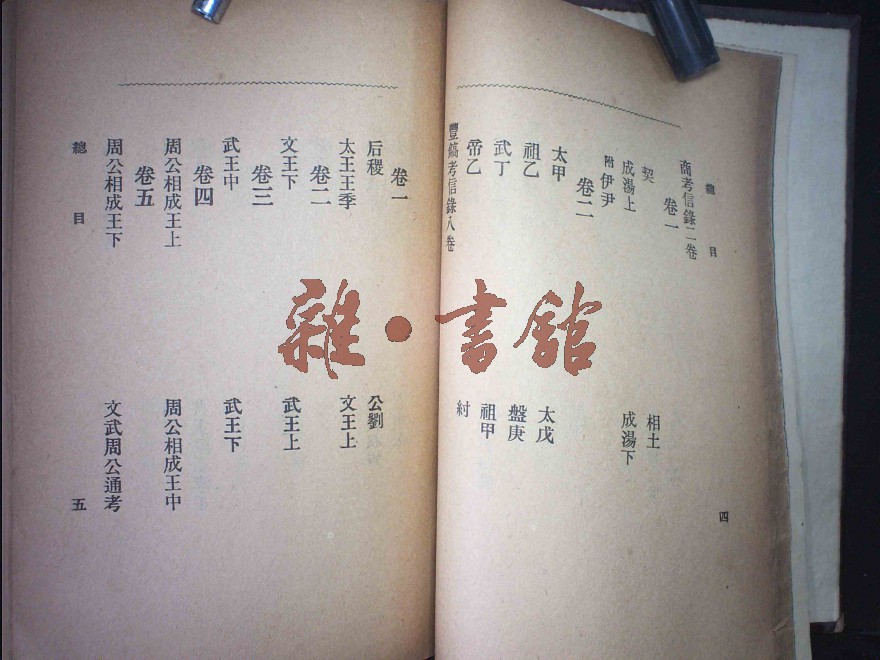 總目
商考信錄二卷
卷一
契
相土
成湯上
成湯下
附伊尹
卷二
太甲
太戊
祖乙
盤庚
武丁
祖甲
帝乙
紂
豐鎬考信錄八卷
四
卷一
后稷
公劉
太王王季
文王上
卷二
文王下
武王上
卷三
武王中
武王下
卷四
周公相成王上
周公相成王中
卷五
周公相成王下
文武周公通考
總目
五
雜·書館